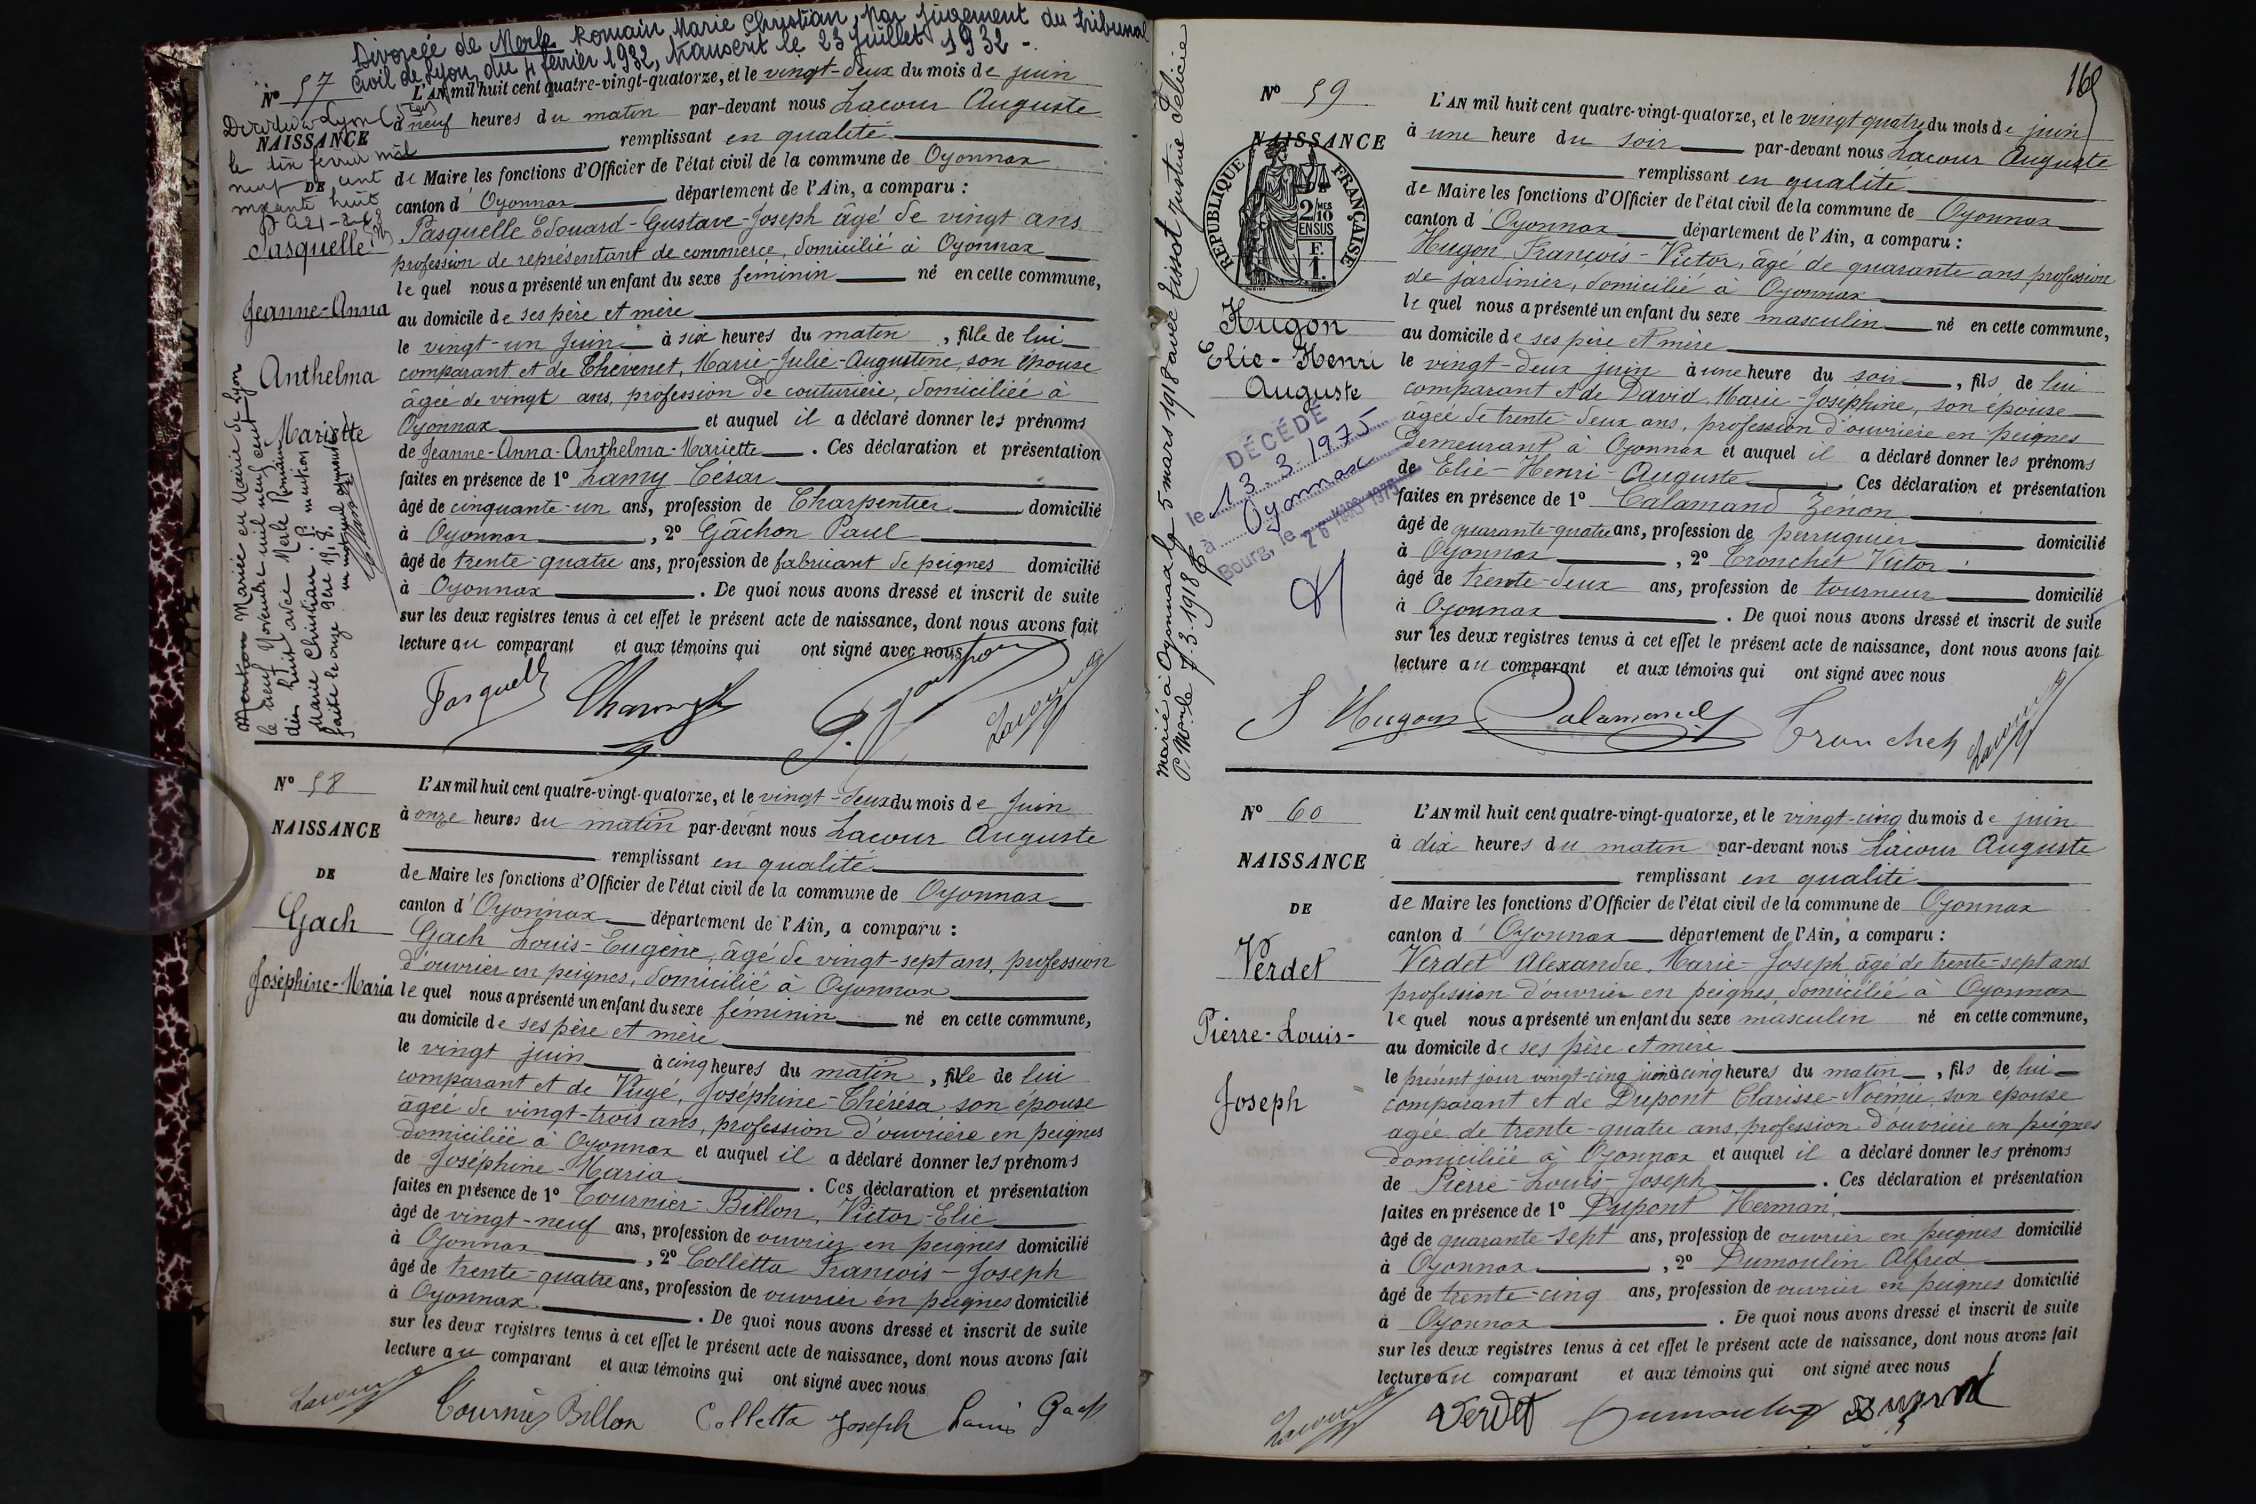 Divorcée de Merle Romain Marie Christian, par jugement du tribunal
Civil de Lyon, du 4 février 1932, transcrit le 23 juillet 1932 -.
N° 57
NAISSANCE
DE
Pasquelle
Jeanne-Anna
Anthelma
Mariette
Décédée à Lyon
le dix février mil
neuf cent
soixante huit
Mention Mariée en Mairie de Lyon
le neuf Novembre mil neuf cent
dix huit avec Merle Romain
Marie Christian P. mention
faite le onze 9bre 1918.
L'AN mil huit cent quatre-vingt-quatorze, et le vingt-deux du mois de juin
à neuf heures du matin par-devant nous Lacour Auguste
remplissant en qualité
de Maire les fonctions d'Officier de l'état civil de la commune de Oyonnax
canton d'Oyonnax département de l'Ain, a comparu :
Pasquelle Edouard-Gustave-Joseph âgé de vingt ans
profession de représentant de commerce, domicilié à Oyonnax
le quel nous a présenté un enfant du sexe féminin né en cette commune,
au domicile de ses père et mère
le vingt-un Juin à six heures du matin, fille de lui
comparant et de Thévenet, Marie-Julie-Augustine, son épouse
âgée de vingt ans, profession de couturière, domiciliée à
Oyonnax et auquel il a déclaré donner les prénoms
de Jeanne-Anna-Anthelma-Mariette. Ces déclaration et présentation
faites en présence de 1° Lamy César
âgé de cinquante-un ans, profession de Charpentier domicilié
à Oyonnax, 2° Gâchon Paul
âgé de trente-quatre ans, profession de fabricant de peignes domicilié
à Oyonnax. De quoi nous avons dressé et inscrit de suite
sur les deux registres tenus à cet effet le présent acte de naissance, dont nous avons fait
lecture au comparant et aux témoins qui ont signé avec nous
Pasquelle
Lacour
N° 58
NAISSANCE
DE
Gach
Joséphine-Maria
L'AN mil huit cent quatre-vingt-quatorze, et le vingt-deux du mois de Juin
à onze heures du matin par-devant nous Lacour Auguste
remplissant en qualité
de Maire les fonctions d'Officier de l'état civil de la commune de Oyonnax
canton d'Oyonnax département de l'Ain, a comparu :
Gach Louis-Eugène, âgé de vingt-sept ans, profession
d'ouvrier en peignes, domicilié à Oyonnax
le quel nous a présenté un enfant du sexe féminin né en cette commune,
au domicile de ses père et mère
le vingt juin à cinq heures du matin, fille de lui
comparant et de Vugé, Joséphine-Thérésa, son épouse
âgée de vingt-trois ans, profession d'ouvrière en peignes
domiciliée à Oyonnax et auquel il a déclaré donner les prénoms
de Joséphine-Maria. Ces déclaration et présentation
faites en présence de 1° Tournier-Billon, Victor-Elie
âgé de vingt-neuf ans, profession de ouvrier en peignes domicilié
à Oyonnax, 2° Colletta François-Joseph
âgé de trente-quatre ans, profession de ouvrier en peignes domicilié
à Oyonnax. De quoi nous avons dressé et inscrit de suite
sur les deux registres tenus à cet effet le présent acte de naissance, dont nous avons fait
lecture au comparant et aux témoins qui ont signé avec nous
Lacour Tournier Billon Colletta Joseph Louis Gach
169
N° 59
NAISSANCE
RÉPUBLIQUE FRANÇAISE
2/10 MES
EN SUS
F.
1.
Hugon
Elie-Henri
Auguste
DÉCÉDÉ
le 13.3.1975
à Oyonnax
Bourg, le
Marié à Oyonnax le 5 mars 1918 avec Tissot Justine Félicie
P. Mon le 7.3.1918
L'AN mil huit cent quatre-vingt-quatorze, et le vingt quatre du mois de juin
à une heure du soir par-devant nous Lacour Auguste
remplissant en qualité
de Maire les fonctions d'Officier de l'état civil de la commune de Oyonnax
canton d'Oyonnax département de l'Ain, a comparu :
Hugon François-Victor, âgé de quarante ans profession
de jardinier, domicilié à Oyonnax
le quel nous a présenté un enfant du sexe masculin né en cette commune,
au domicile de ses père et mère
le vingt-deux juin à une heure du soir, fils de lui
comparant et de David Marie-Joséphine, son épouse
âgée de trente-deux ans, profession d'ouvrière en peignes
demeurant à Oyonnax et auquel il a déclaré donner les prénoms
de Elie-Henri-Auguste. Ces déclaration et présentation
faites en présence de 1° Calamand Zénon
âgé de quarante-quatre ans, profession de perruquier domicilié
à Oyonnax, 2° Tronchet Victor
âgé de trente-deux ans, profession de tourneur domicilié
à Oyonnax. De quoi nous avons dressé et inscrit de suite
sur les deux registres tenus à cet effet le présent acte de naissance, dont nous avons fait
lecture au comparant et aux témoins qui ont signé avec nous
Hugon Calamand Tronchet Lacour
N° 60
NAISSANCE
DE
Verdet
Pierre-Louis-
Joseph
L'AN mil huit cent quatre-vingt-quatorze, et le vingt-cinq du mois de juin
à dix heures du matin par-devant nous Lacour Auguste
remplissant en qualité
de Maire les fonctions d'Officier de l'état civil de la commune de Oyonnax
canton d'Oyonnax département de l'Ain, a comparu :
Verdet Alexandre, Marie-Joseph, âgé de trente-sept ans
profession d'ouvrier en peignes, domicilié à Oyonnax
le quel nous a présenté un enfant du sexe masculin né en cette commune,
au domicile de ses père et mère
le présent jour vingt-cinq juin à cinq heures du matin, fils de lui
comparant et de Dupont Clarisse-Noémie, son épouse
âgée de trente-quatre ans, profession d'ouvrière en peignes
domiciliée à Oyonnax et auquel il a déclaré donner les prénoms
de Pierre-Louis-Joseph. Ces déclaration et présentation
faites en présence de 1° Dupont Herman,
âgé de quarante sept ans, profession de ouvrier en peignes domicilié
à Oyonnax, 2° Dumoulin Alfred
âgé de trente-cinq ans, profession de ouvrier en peignes domicilié
à Oyonnax. De quoi nous avons dressé et inscrit de suite
sur les deux registres tenus à cet effet le présent acte de naissance, dont nous avons fait
lecture au comparant et aux témoins qui ont signé avec nous
Lacour Verdet Dumoulin